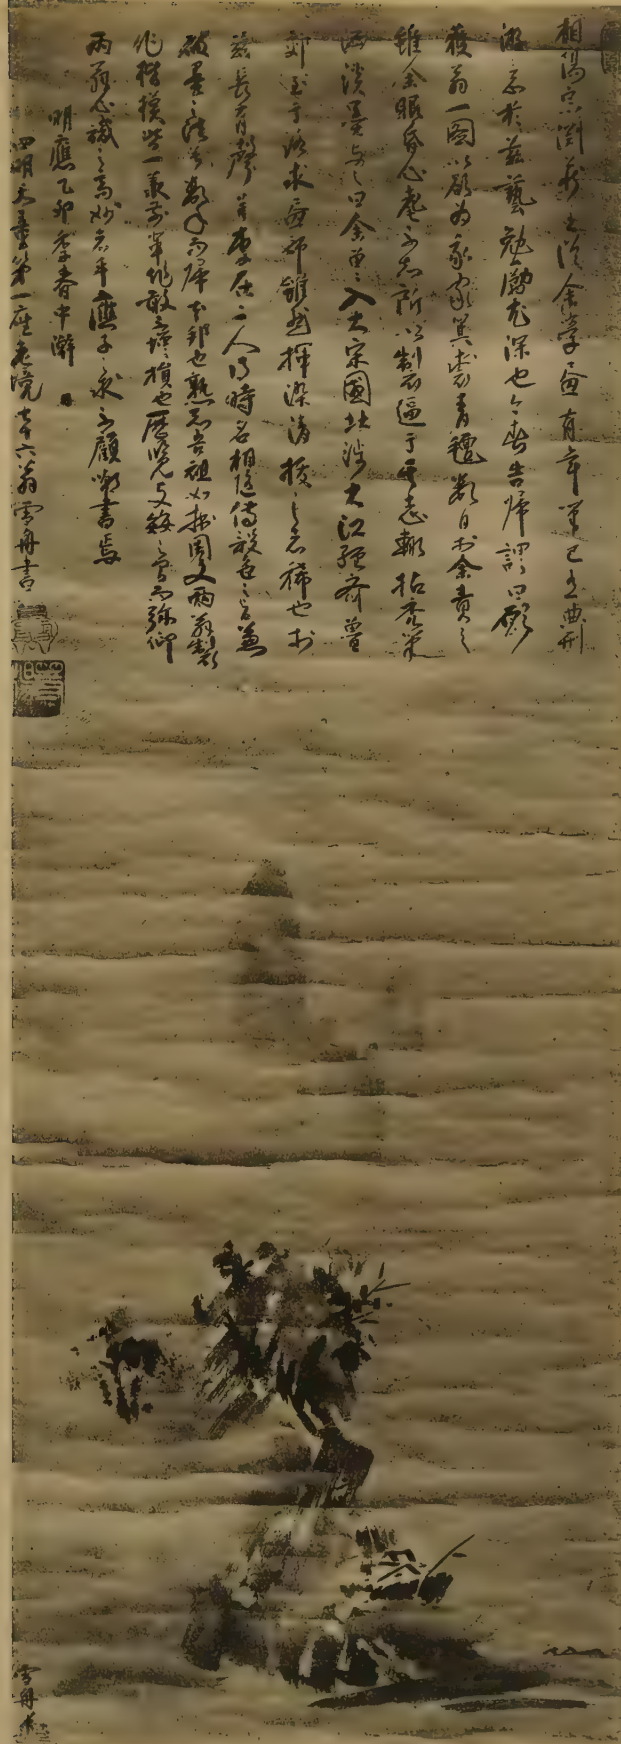 相陽宗淵蔵主従余学画有年筆已有典刑
游意於茲藝勉励尤深也今春告帰謂曰願
獲翁一図以欲為家家箕裘青氈数日於余責之
雖余眼昏心耄不知所以製不逼于其志輙拈禿筆
洒淡墨与之曰余曽入大宋国北渉大江経斉魯
郊至于洛求画師雖然揮染清抜之者稀也於
茲長有声並李在二人得時名相随伝設色之旨兼
破墨之法兮数年而帰本邦也熟知吾祖如拙周文両翁製
作楷模皆一承前輩作敢不増損也歴覧支倭之間而弥仰
両翁心識之高妙者乎応子之求不顧嘲書焉
明應乙卯季春中澣日
四明天童第一座老境七十六翁雪舟書
雪舟筆